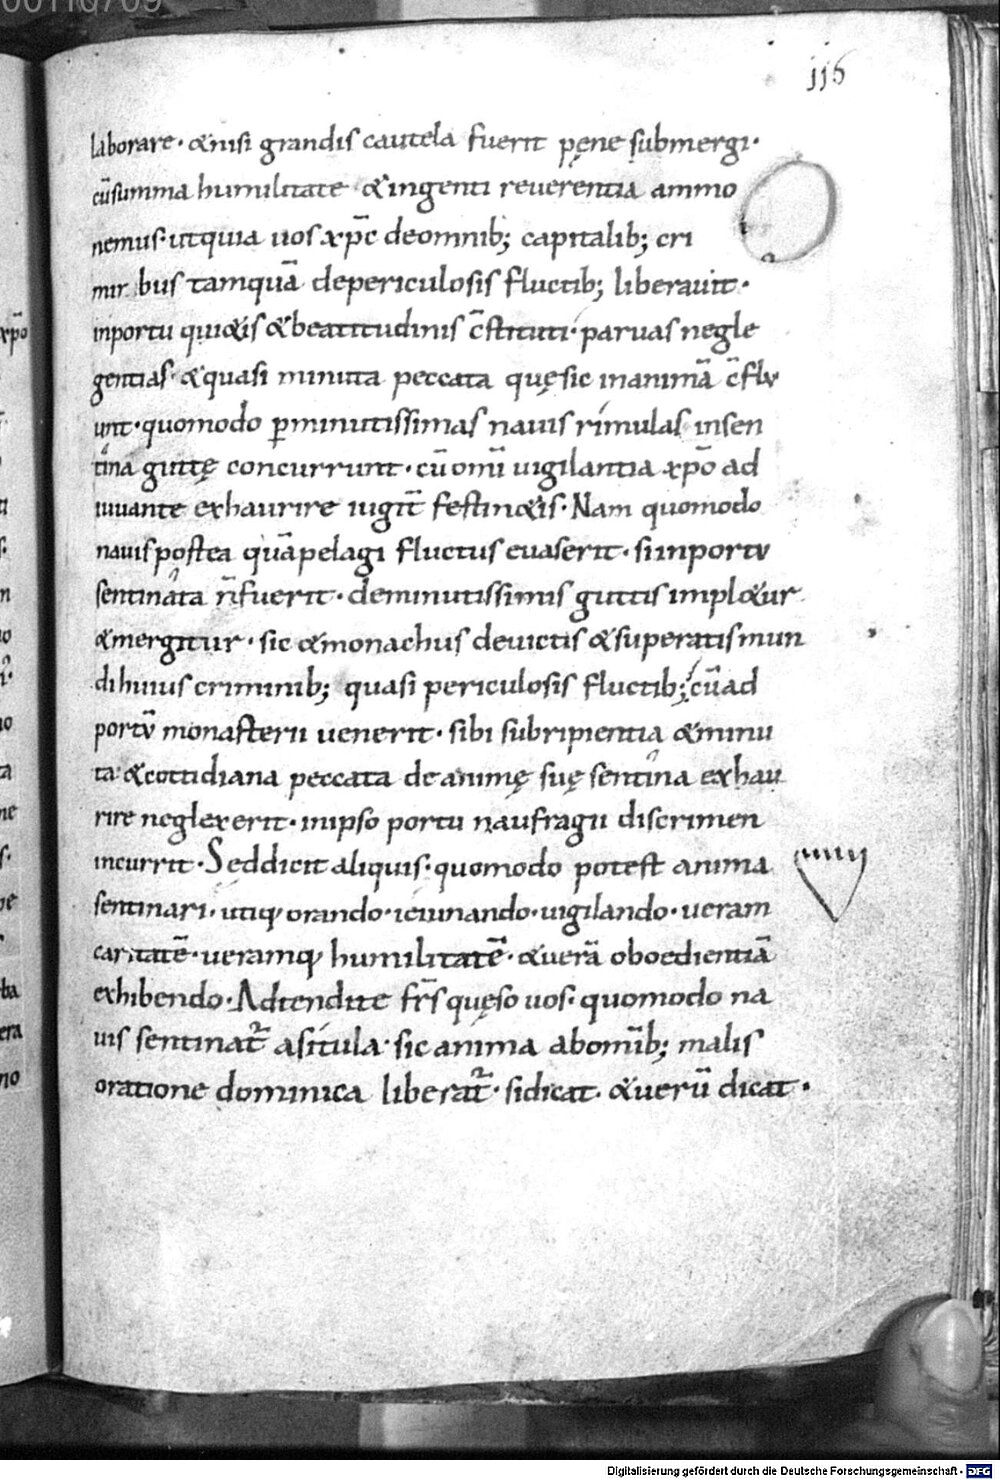 116
laborare · &nisi grandis cautela fuerit pęne submergi ·
cū summa humilitate · &ingenti reuerentia ammo
nemus · utquia uos xp̄c deomnib; capitalib; cri
mi bus tamquā depericulosis fluctib; liberauit ·
inportu qui&is &beatitudinis c̄stituti · paruas negle
gentias · &quasi minuta peccata quę sic inanimā c̄flu
unt · quomodo ꝑminutissimas nauis rimulas insen
tina guttę concurrunt · cū omī uigilantia xp̄o ad
iuuante exhaurire iugit̄ festin&is · Nam quomodo
nauis postea quā pelagi fluctus euaserit · siinportu
sentinata n̄ fuerit · deminutissimis guttis impl&ur
&mergitur · sic &monachus deuictis &superatis mun
di huius criminib; quasi periculosis fluctib; cū ad
portū monasterii uenerit · sibi subripientia &minu
ta · &cottidiana peccata de animę suę sentina exhau
rire neglexerit · inipso portu naufragii discrimen
incurrit · Sed dicit aliquis · quomodo potest anima
sentinari · utiq; orando · ieiunando · uigilando · ueram
caritatē · ueramq; humilitatē · &uerā oboedientiā
exhibendo · Adtendite fr̄s quęso uos · quomodo na
uis sentinat̄ asitula · sic anima abomīb; malis
oratione dominica liberat̄ · sidicat · &uerū dicat ·
Digitalisierung gefördert durch die Deutsche Forschungsgemeinschaft - DFG